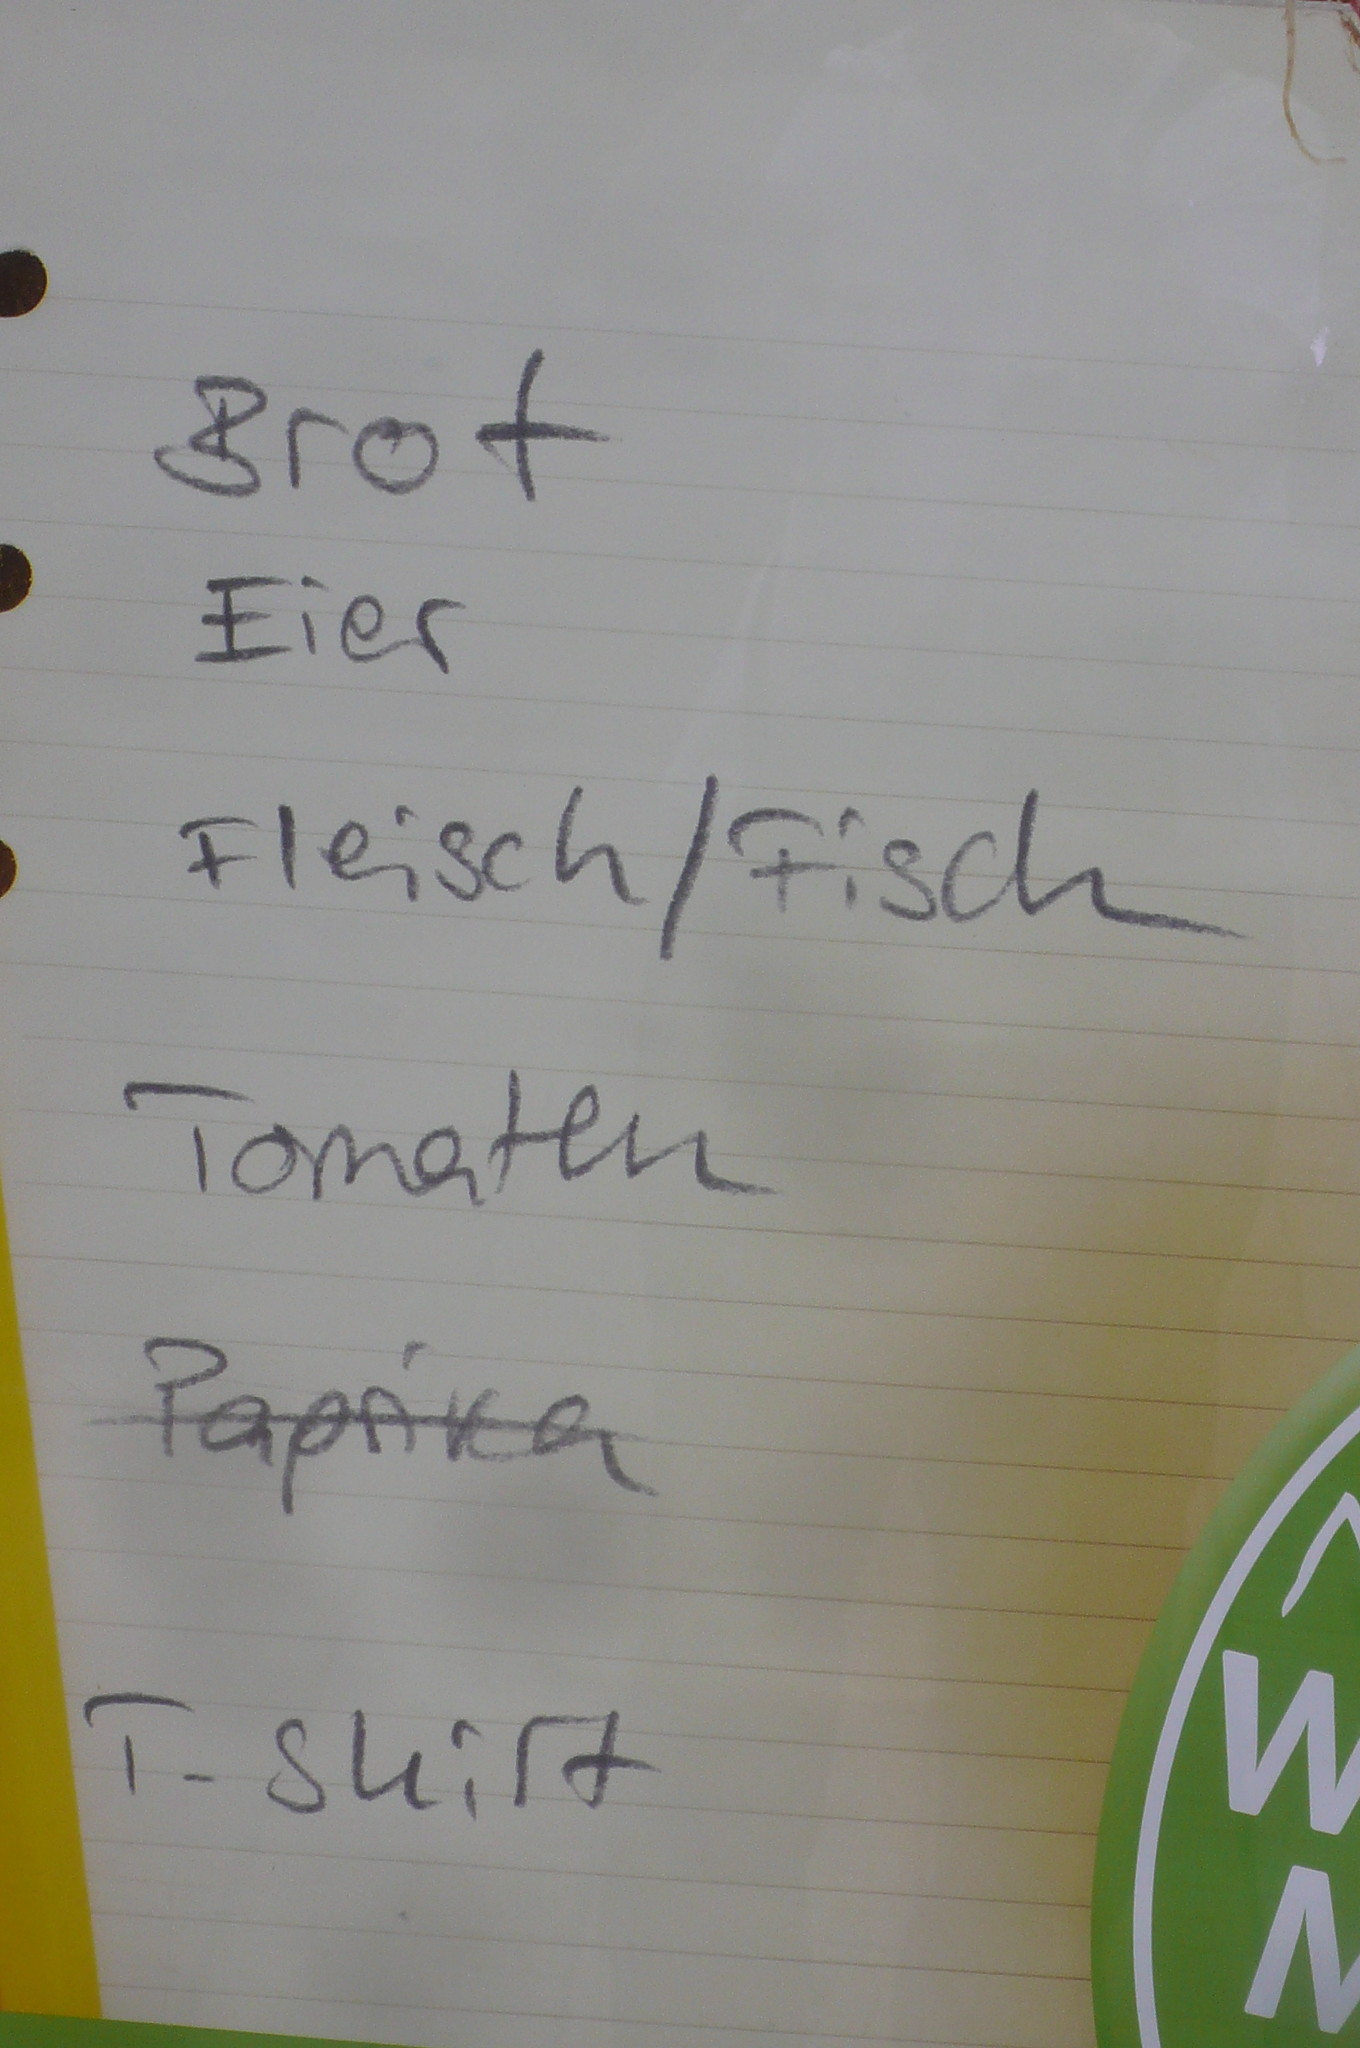 Brot
Eier
Fleisch/Fisch
Tomaten
Paprika
T-Shirt
W
M